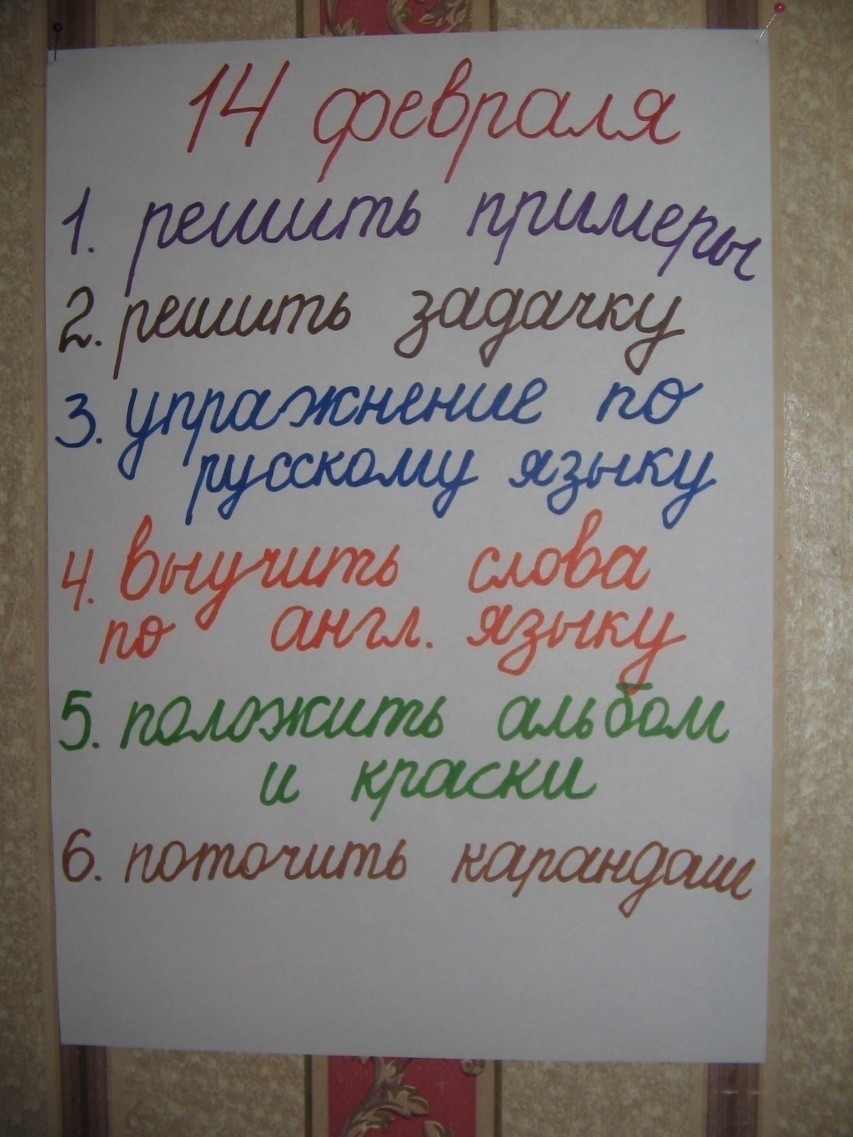 14 февраля
1. решить примеры
2. решить задачку
3. упражнение по
русскому языку
4. выучить слова
по англ. языку
5. положить альбом
и краски
6. поточить карандаш